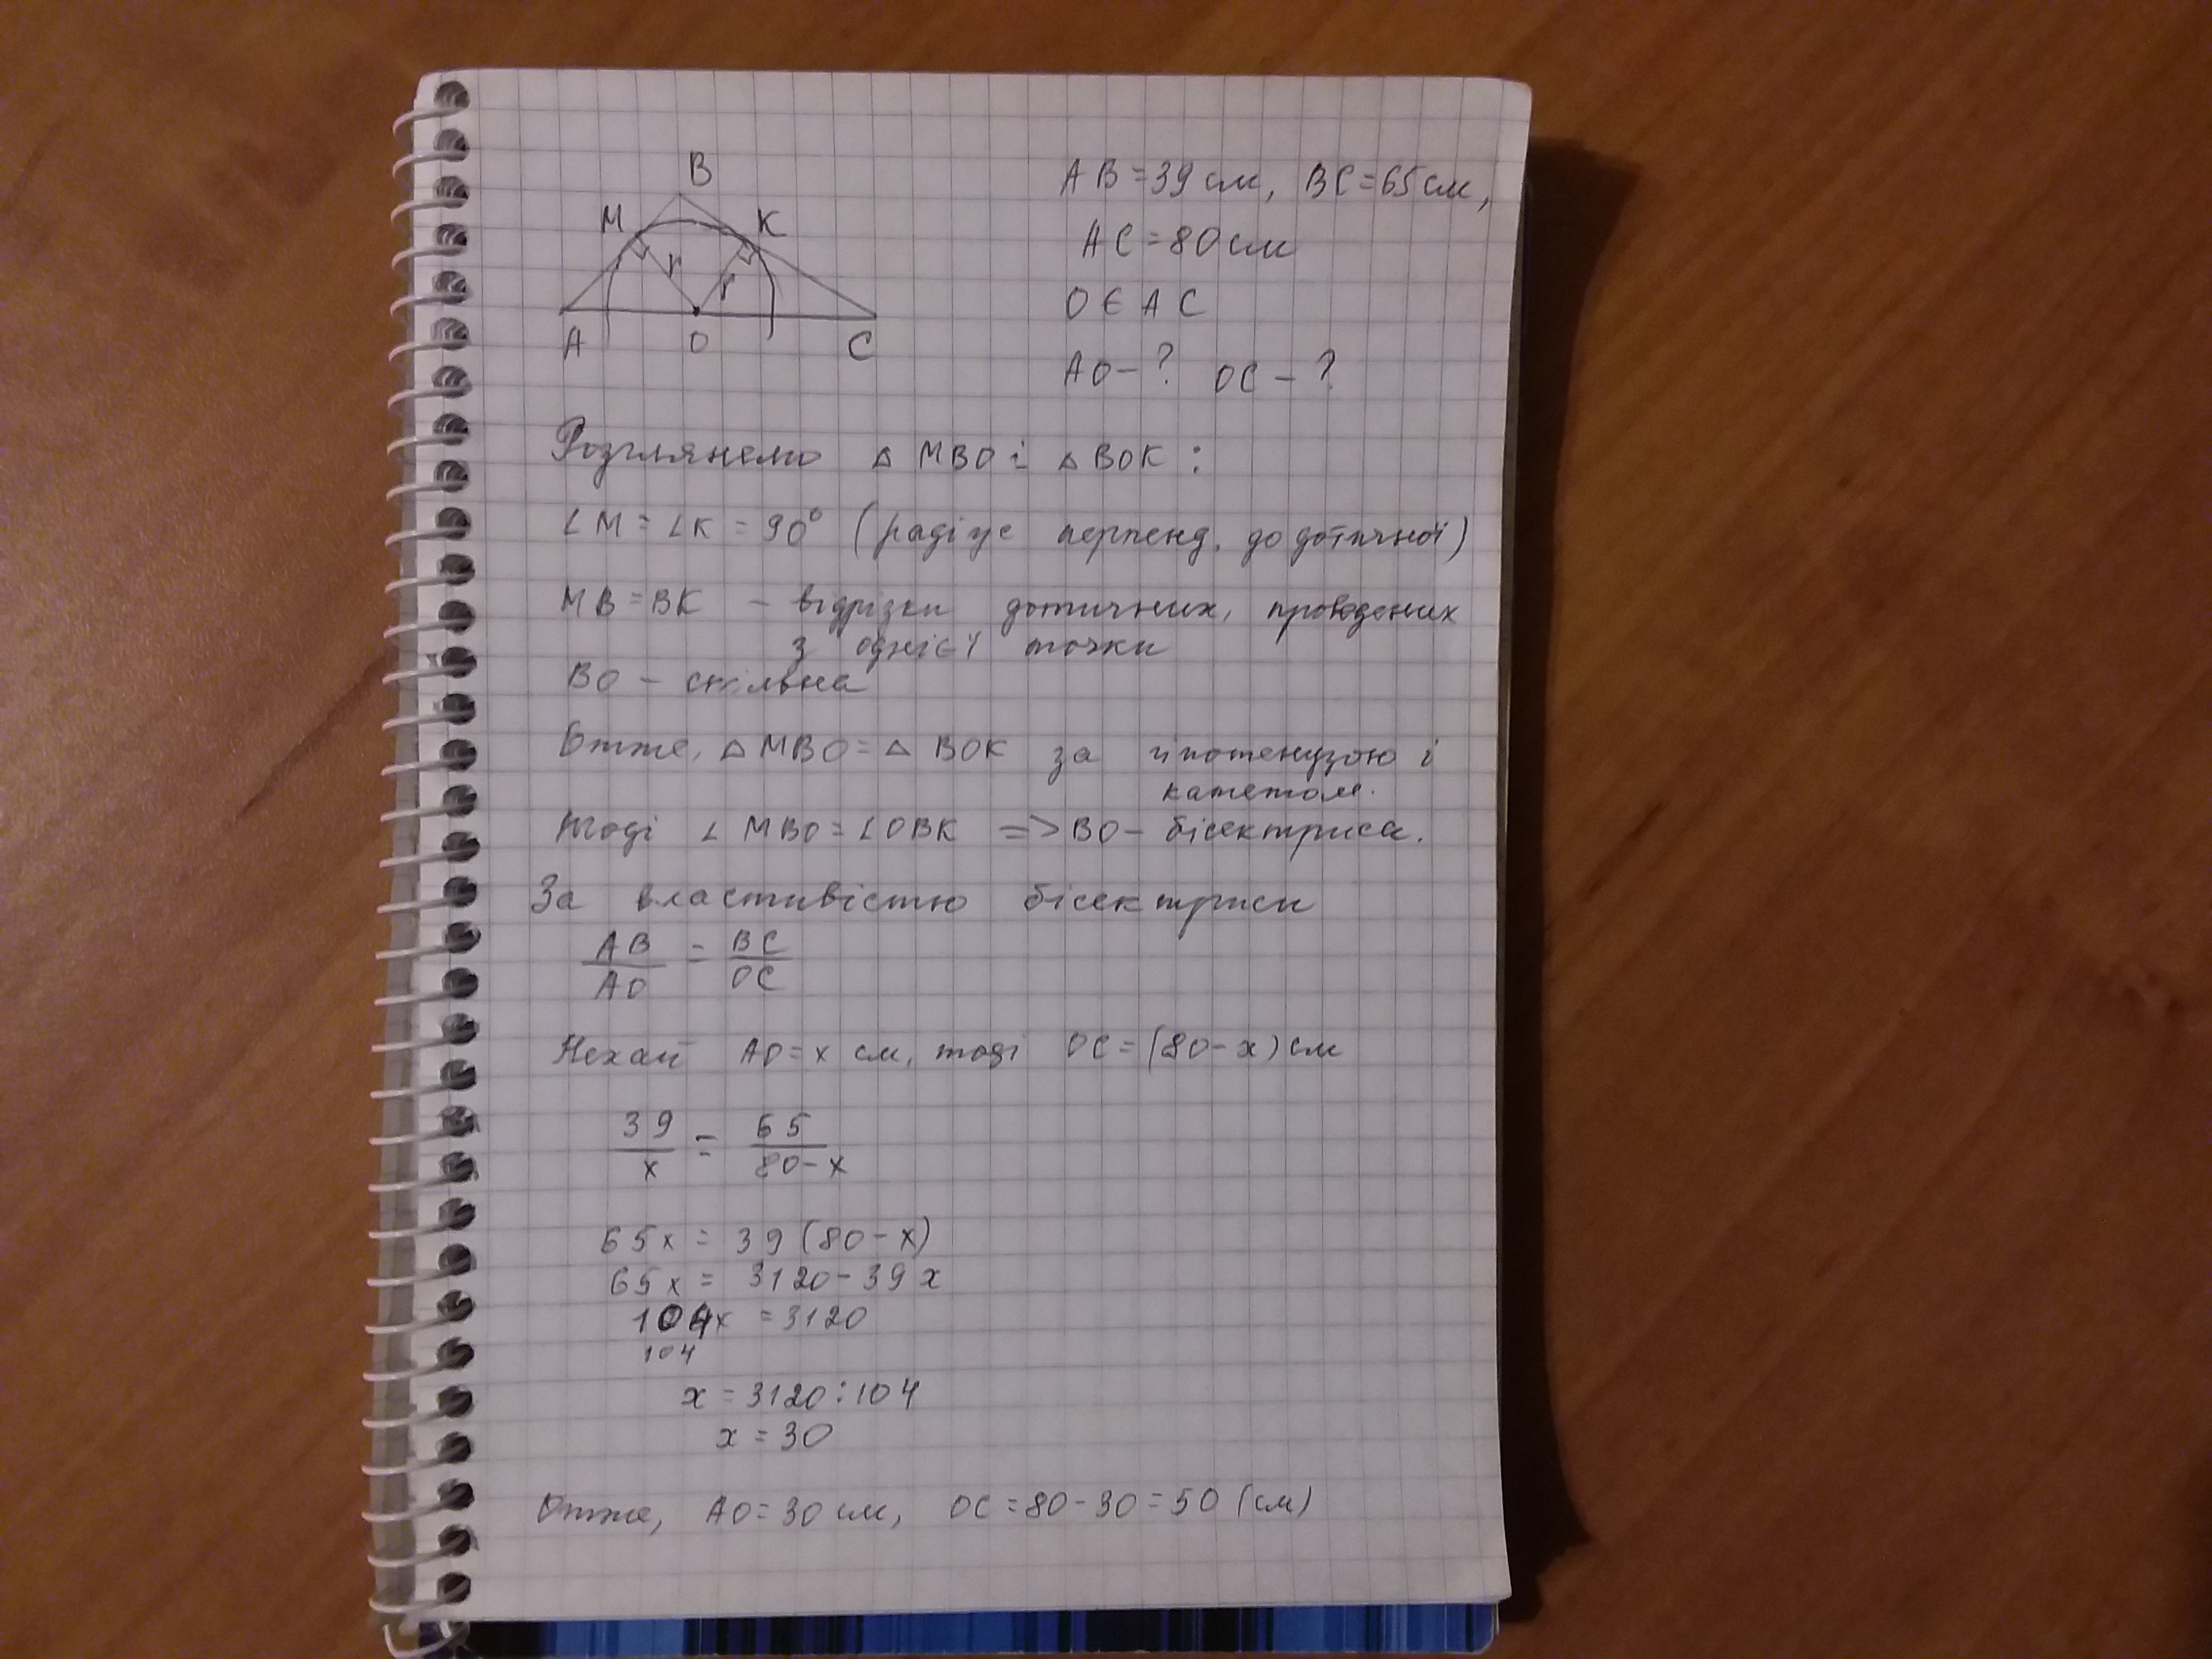 B
M
K
r
r
A
O
C
AB=39 см, BC=65 см,
AC=80 см
O ∈ AC
AO-? OC-?
Розглянемо △ MBO і △ BOK :
∠M=∠K=90° (радіус перпенд. до дотичної)
MB=BK - відрізки дотичних, проведених
з однієї точки
BO - спільна
Отже, △ MBO = △ BOK за гіпотенузою і
катетом.
Тоді ∠MBO=∠OBK => BO- бісектриса.
За властивістю бісектриси
AB/AO = BC/OC
Нехай AO=x см, тоді OC=(80-x) см
39/x = 65/80-x
65x = 39(80-x)
65x = 3120-39x
104x = 3120
104
x = 3120:104
x = 30
Отже, AO=30 см, OC=80-30=50 (см)